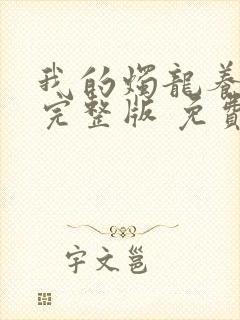 我的燭龍養
完整版 免費
宇文邕